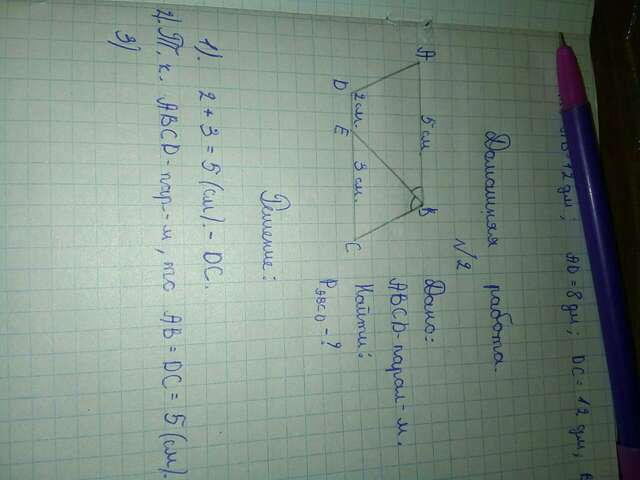 AB=12 дм; AD=8 дм; DC=12 дм;
Домашняя работа.
№2
A 5 см B
D 2 см. E 3 см. C
Дано:
ABCD-парал-м.
Найти:
P ABCD-?
Решение:
1). 2+3=5 (см).- DC.
2). Т.к. ABCD-пар-м, то AB=DC=5 (см).
3)